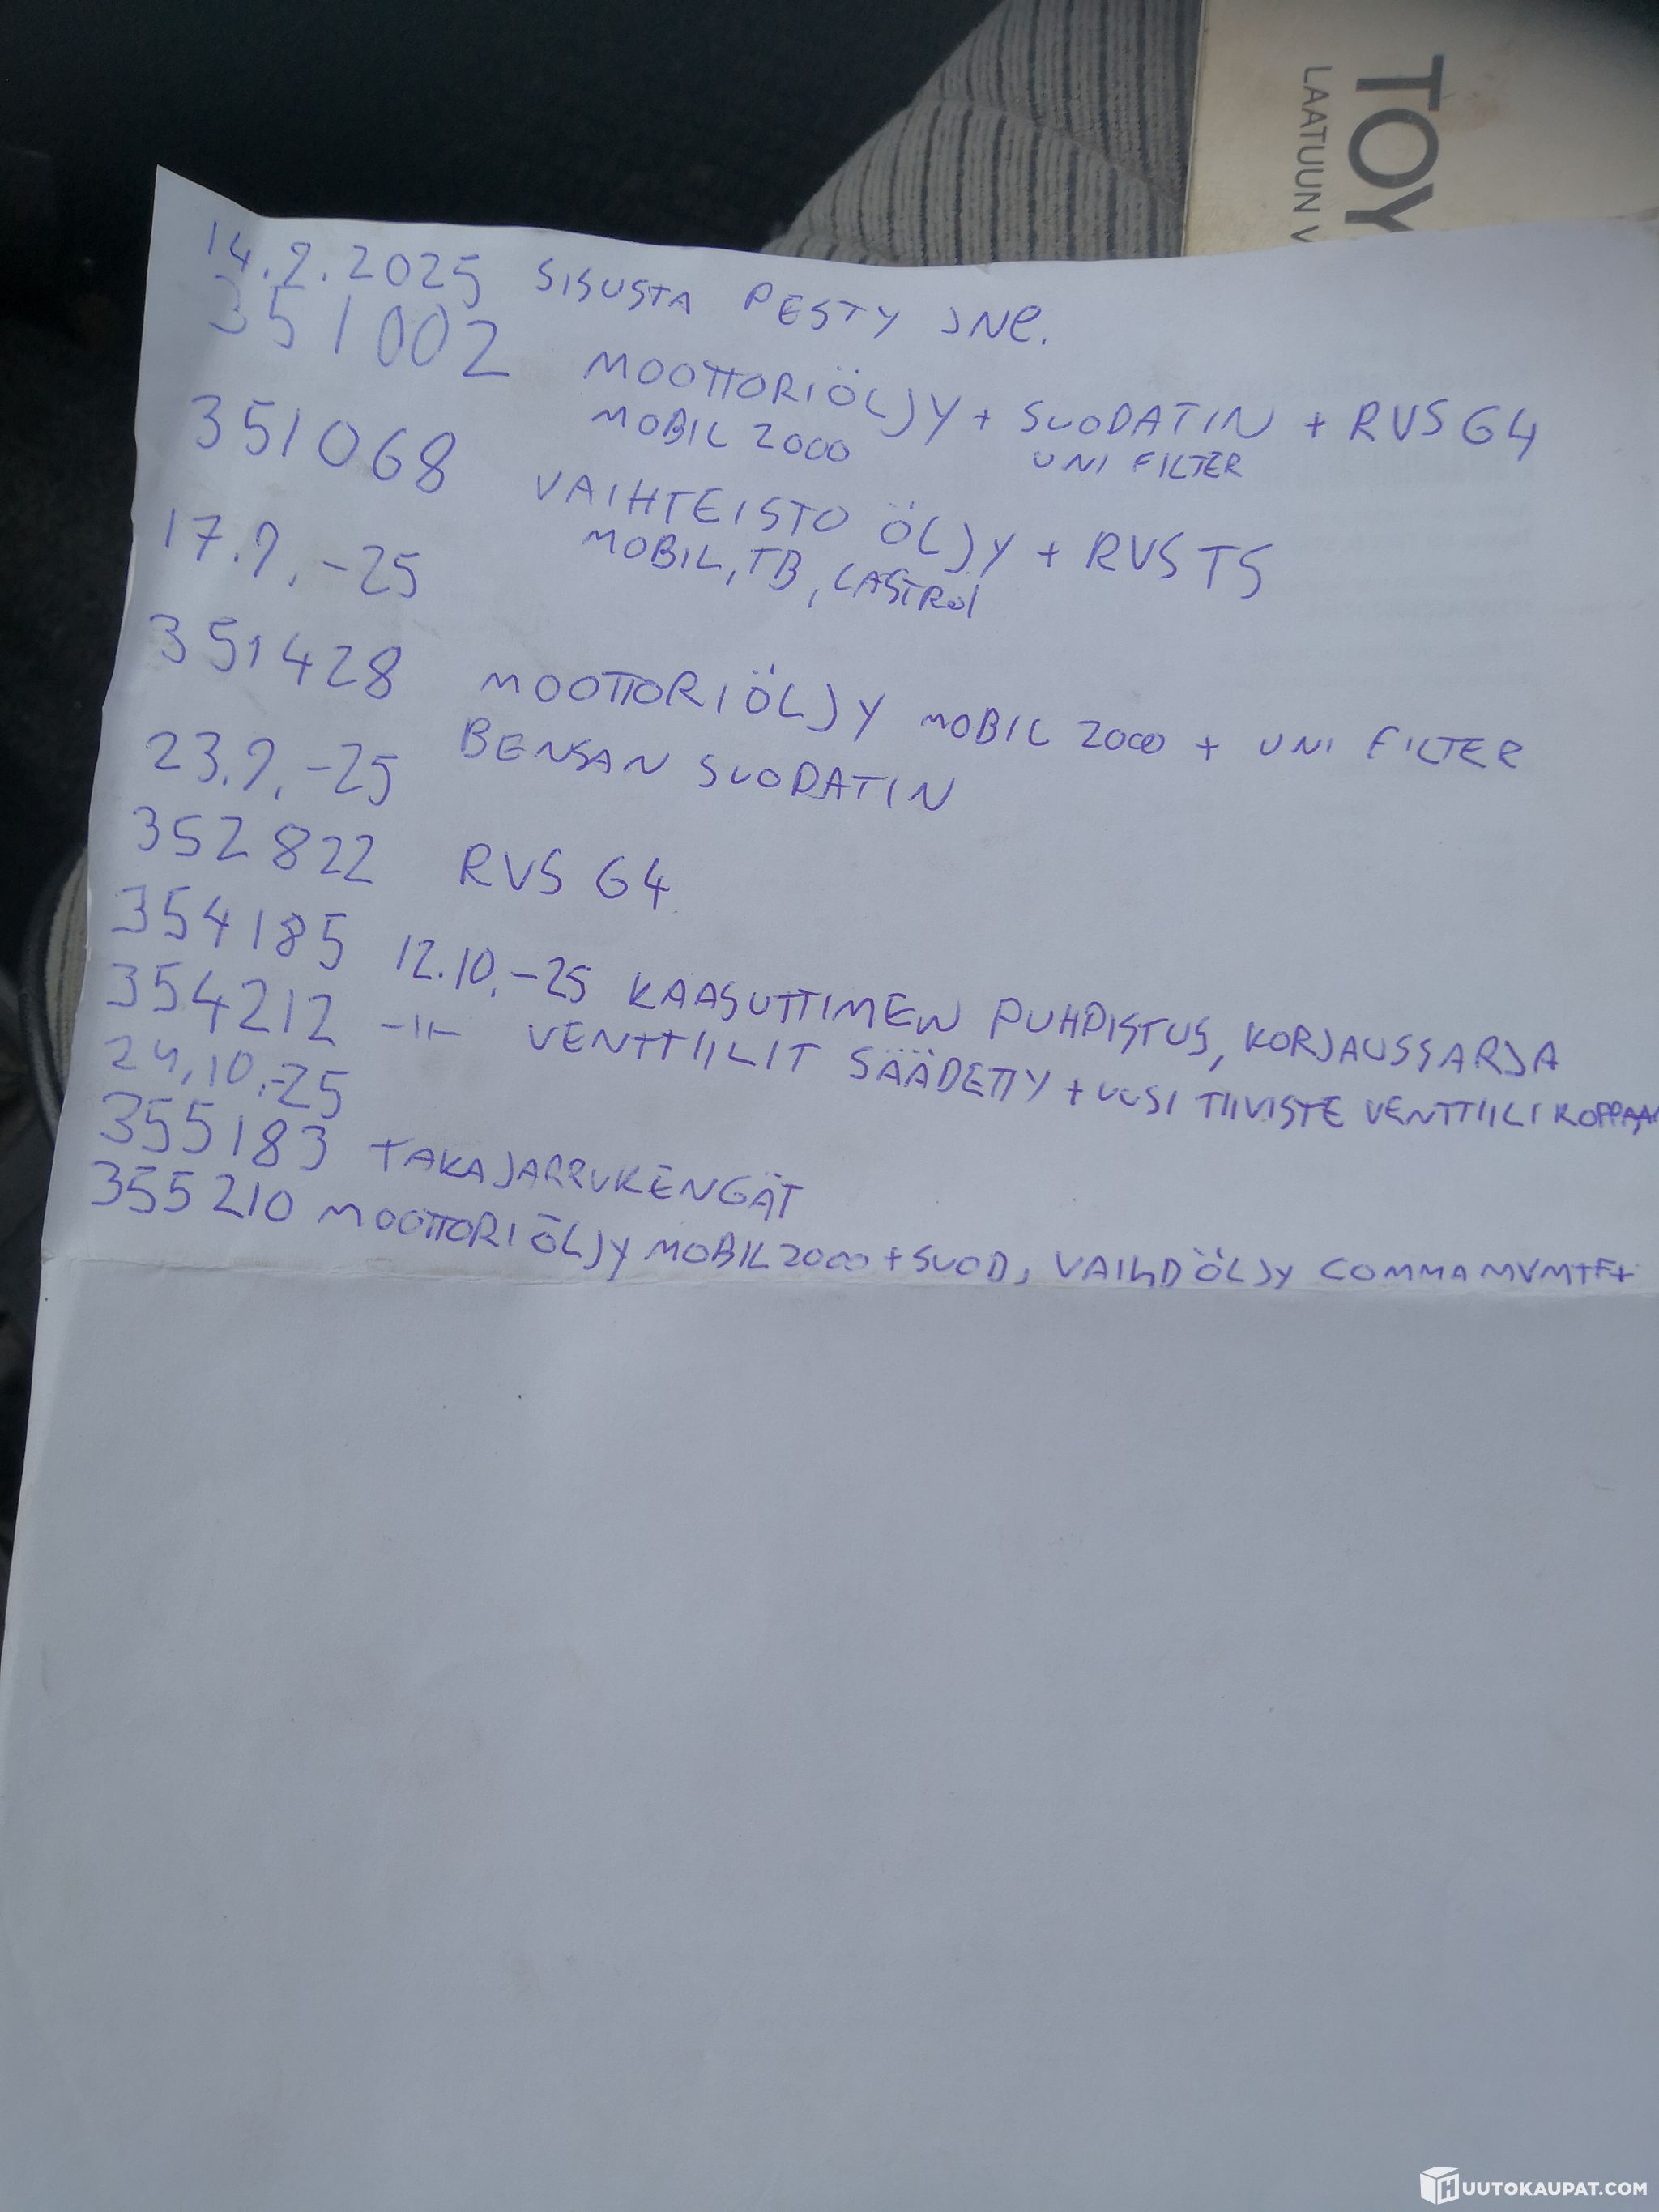 TOY
LAATUUN V
14.9.2025 SISUSTA PESTY JNE.
351002 MOOTTORIÖLJY + SUODATIN + RVS G4
MOBIL 2000 UNI FILTER
351068 VAIHTEISTO ÖLJY + RVS T5
MOBIL, TB, CASTROL
17.9.-25
351428 MOOTTORIÖLJY MOBIL 2000 + UNI FILTER
BENSAN SUODATIN
23.9.-25
352822 RVS G4
354185 12.10.-25 KAASUTTIMEN PUHDISTUS, KORJAUSSARJA
354212 -11- VENTTIILIT SÄÄDETTY + UUSI TIIVISTE VENTTIILIKOPPAAN
24.10.-25
355183 TAKAJARRUKENGÄT
355210 MOOTTORIÖLJY MOBIL 2000 + SUOD, VAIHDÖLJY COMMA MVMTF+
HUUTOKAUPAT.COM